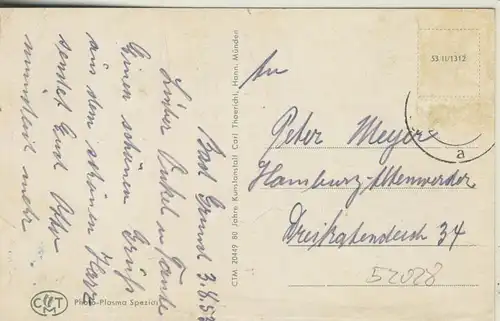 Bad Grund 3.8.53
Lieber Onkel u Tante
Einen schönen Gruß
aus dem schönen Harz
sendet Euch Otto
mehr
An
Peter Meyer
Hamburg-Altenwerder
34
52028
53-II/1312
a
CTM. 20449 80 Jahre Kunstanstalt Carl Thoericht, Hann. Münden
CTM
Photo-Plasma Spezial